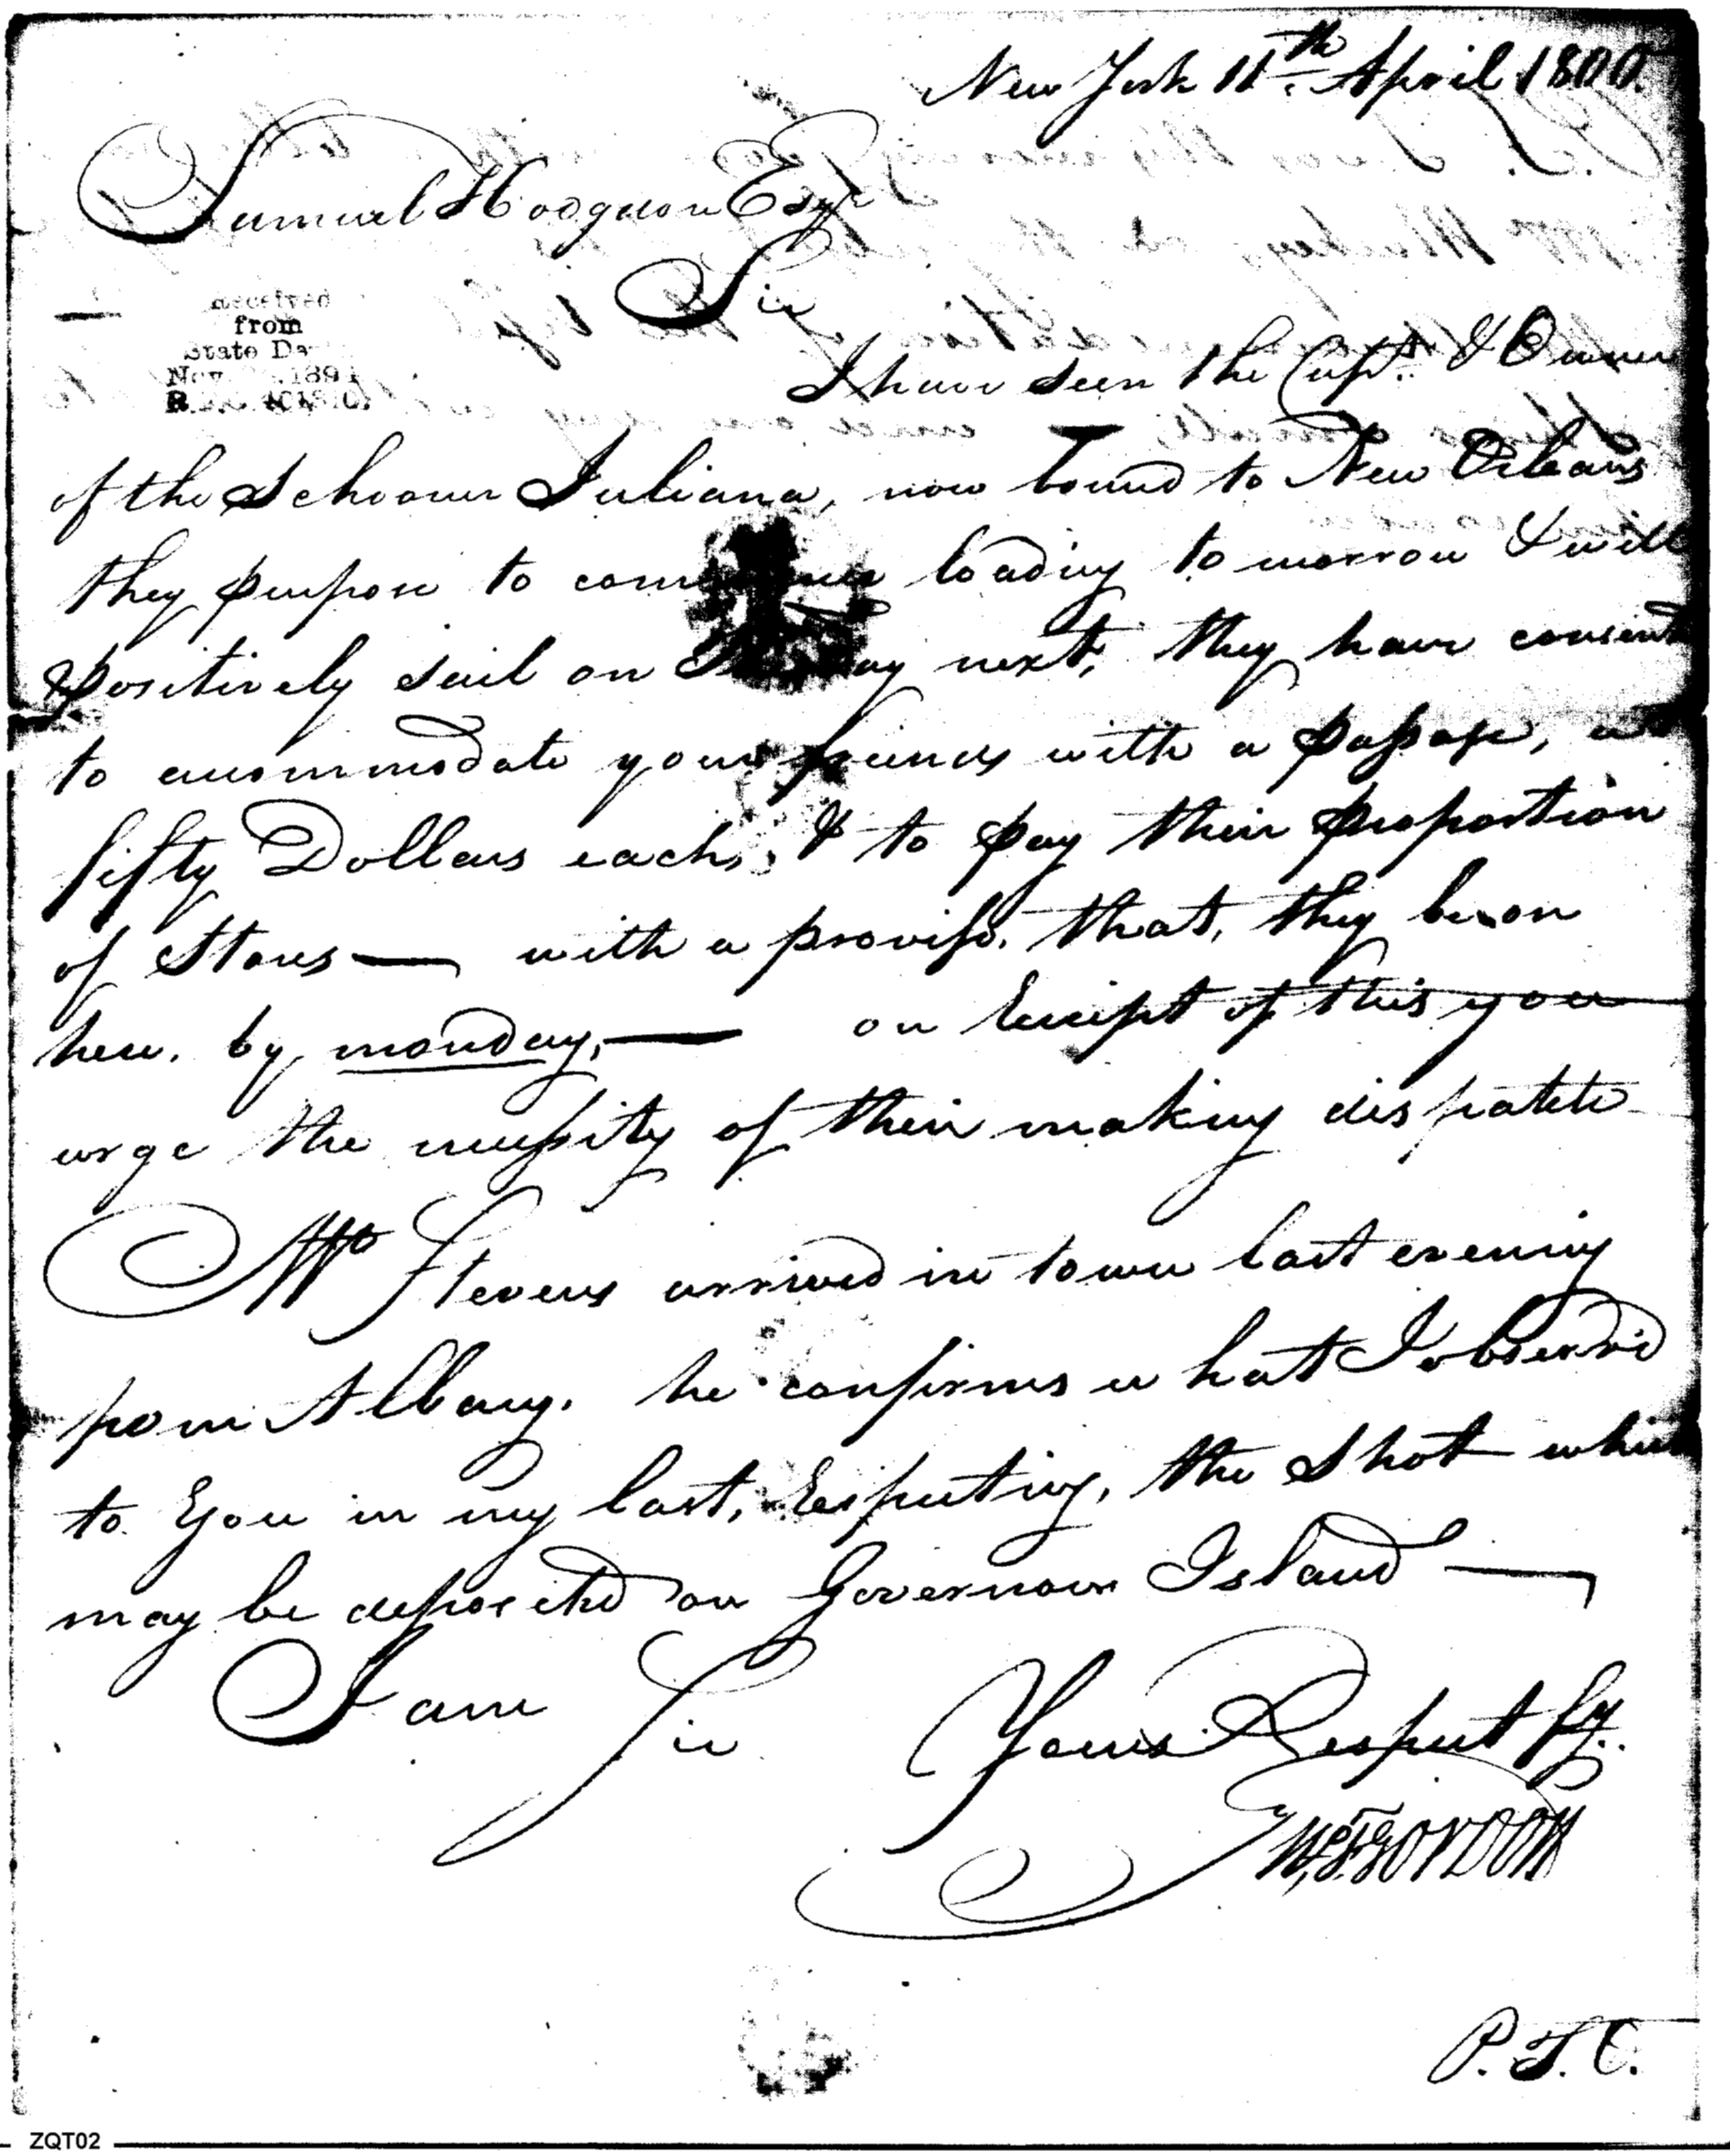 New York 11th April 1800.
Samuel Hodgdon Esqr
Sir
Received
from
State De
Nov. 1894
I have seen the Capt. & Owner
of the Schooner Juliana, now bound to New Orleans
they purpose to commence loading to morrow & will
positively sail on next, they have consent
to accommodate your friends with a passage, at
fifty Dollars each, & to pay their proportion
of Stores — with a proviso, that, they be on
here, by monday, — on Receipt of this you
urge the necessity of their making dispatch
Mr Stevens arrived in town last evening
from Albany. he confirms what I observ'd
to you in my last, Respecting, the Shot which
may be deposited on Governours Island —
I am Sir Yours Respectfy.
GORDON
P. T. O.
ZQT02